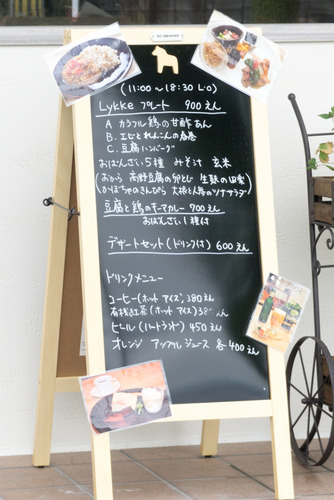 NO SMOKING
(11:00〜18:30 L.O)
Lykke プレート 900えん
A カラフル鶏の甘酢あん
B. エビとれんこんの春巻
C. 豆腐ハンバーグ
おばんざい5種 みそ汁 玄米
(おから 高野豆腐の卵とじ 生麩の田楽
かぼちゃのきんぴら 大根と梅のツナサラダ)
豆腐と鶏のキーマカレー 900えん
おばんざい1種付
デザートセット(ドリンク付) 600えん
ドリンクメニュー
コーヒー(ホット アイス) 380えん
有機紅茶(ホット アイス) 38 えん
ビール(ハートランド) 450えん
オレンジ アップル ジュース 各400えん